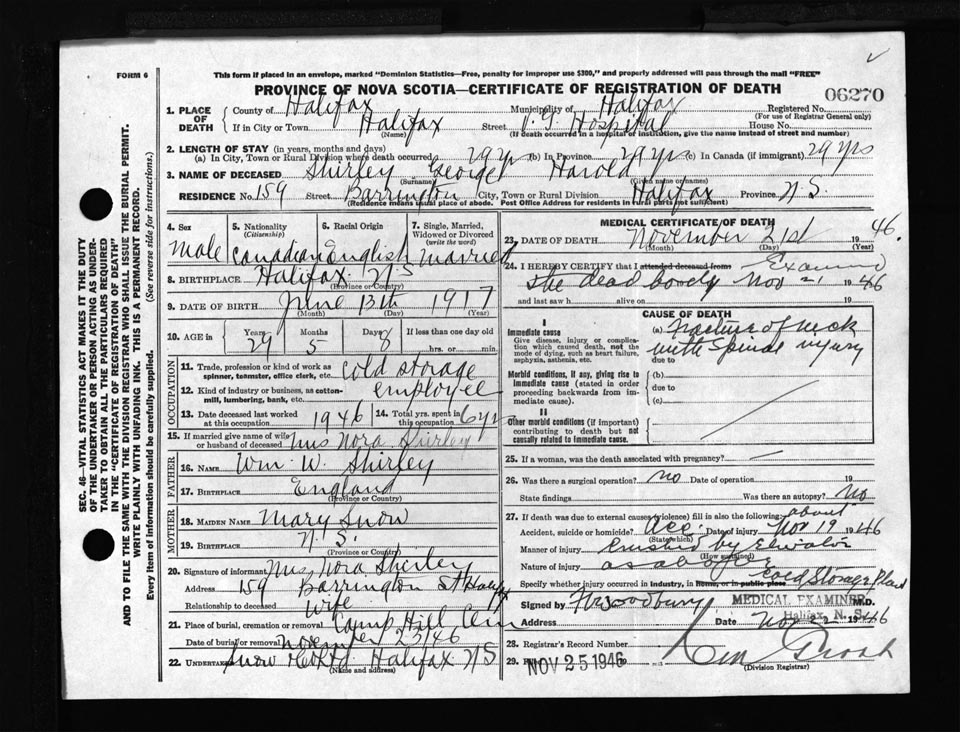 FORM 6
This form if placed in an envelope, marked "Dominion Statistics—Free, penalty for improper use $300," and properly addressed will pass through the mail "FREE"
PROVINCE OF NOVA SCOTIA—CERTIFICATE OF REGISTRATION OF DEATH
06270
1. PLACE OF DEATH
County of Halifax Municipality of Halifax Registered No.
(For use of Registrar General only)
If in City or Town Halifax Street V. G. Hospital House No.
(Name) (If death occurred in a hospital or institution, give the name instead of street and number)
2. LENGTH OF STAY (in years, months and days)
(a) In City, Town or Rural Division where death occurred 29 yrs (b) In Province 29 yrs (c) In Canada (if immigrant) 29 yrs
3. NAME OF DECEASED Shirley George Harold
(Surname) (Given name or names)
RESIDENCE No. 159 Street Barrington City, Town or Rural Division Halifax Province N.S.
(Residence means usual place of abode. Post Office Address for residents in rural parts not sufficient)
4. Sex
male
5. Nationality (Citizenship)
Canadian
6. Racial Origin
English
7. Single, Married, Widowed or Divorced (write the word)
married
8. BIRTHPLACE Halifax N S
(Province or Country)
9. DATE OF BIRTH June 13th 1917
(Month) (Day) (Year)
10. AGE in Years 29 Months 5 Days 8 If less than one day old
hrs. or min.
OCCUPATION
11. Trade, profession or kind of work as spinner, teamster, office clerk, etc. cold storage
12. Kind of industry or business, as cotton-mill, lumbering, bank, etc. employee
13. Date deceased last worked at this occupation 1946
14. Total yrs. spent in this occupation 6 yrs
15. If married give name of wife or husband of deceased Mrs Nora Shirley
FATHER
16. NAME Wm. W. Shirley
17. BIRTHPLACE England
(Province or Country)
MOTHER
18. MAIDEN NAME Mary Snow
19. BIRTHPLACE N.S.
(Province or Country)
20. Signature of informant Mrs. Nora Shirley
Address 159 Barrington St Halifax
Relationship to deceased wife
21. Place of burial, cremation or removal Camp Hill Cem
Date of burial or removal November 23/46
22. Undertaker Snow & Co Ltd Halifax N S
(Name and address)
MEDICAL CERTIFICATE OF DEATH
23. DATE OF DEATH November 21st 1946.
(Month) (Day) (Year)
24. I HEREBY CERTIFY that I attended deceased from Examined
the dead body Nov 21 1946
and last saw h alive on 19
CAUSE OF DEATH
I
Immediate cause
Give disease, injury or complication which caused death, not the mode of dying, such as heart failure, asphyxia, asthenia, etc.
(a) Fracture of neck
with spinal injury
due to
Morbid conditions, if any, giving rise to immediate cause (stated in order proceeding backwards from immediate cause).
(b)
due to
(c)
II
Other morbid conditions (if important) contributing to death but not causally related to immediate cause.
25. If a woman, was the death associated with pregnancy? —
26. Was there a surgical operation? no Date of operation 19
State findings Was there an autopsy? no
27. If death was due to external causes (violence) fill in also the following: about
Accident, suicide or homicide? Acc. Date of injury Nov 19 1946
(State which)
Manner of injury crushed by Elevator
(How sustained)
Nature of injury as above
Specify whether injury occurred in industry, in home, or in public place Cold Storage Plant
Signed by Woodbury MEDICAL EXAMINER M.D.
Halifax N. S.
Address Date Nov 22 1946
28. Registrar's Record No.
29. NOV 25 1946
(Division Registrar)
SEC. 46—VITAL STATISTICS ACT MAKES IT THE DUTY
OF THE UNDERTAKER OR PERSON ACTING AS UNDER-
TAKER TO OBTAIN ALL THE PARTICULARS REQUIRED
IN THE "CERTIFICATE OF REGISTRATION OF DEATH"
AND TO FILE THE SAME WITH THE DIVISION REGISTRAR WHO SHALL ISSUE THE BURIAL PERMIT.
WRITE PLAINLY WITH UNFADING INK. THIS IS A PERMANENT RECORD.
Every item of information should be carefully supplied. (See reverse side for instructions.)